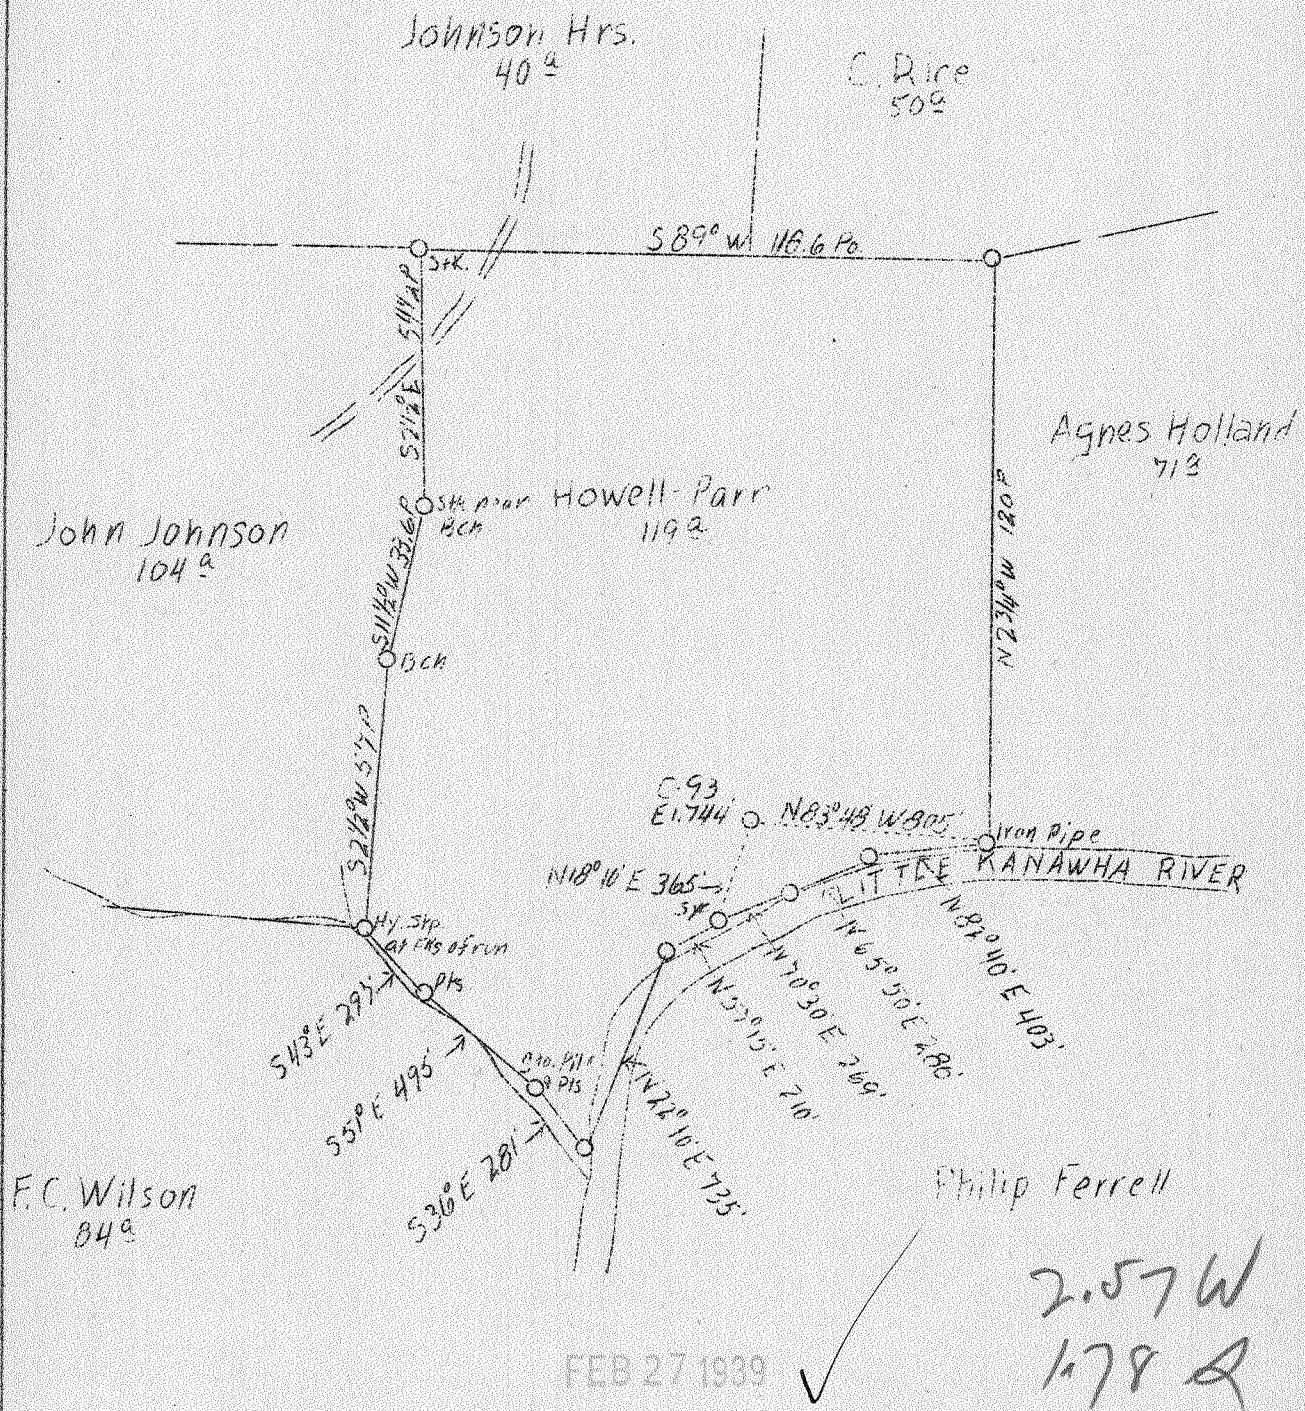 Johnson Hrs.
40 a
C. Rice
50 a
S 89° W 116.6 Po.
Stk.
S 2 1/2° E 54 1/2 P
Agnes Holland
71 a
Stk near
Bch
Howell-Parr
119 a
John Johnson
104 a
N 2 3/4° W 120 P
S 11 1/2° W 33.6 P
Bch
S 2 1/2° W 57 P
C-93
El. 744'
N 83° 48' W 805'
Iron Pipe
LITTLE KANAWHA RIVER
N 18° 10' E 365'
Sy.
Hy. Stp
at Fks of run
Pts
S 43° E 293'
S 51° E 495'
Pts
S 36° E 281'
N 22° 10' E 735'
N 57° 15' E 210'
N 70° 30' E 269'
N 65° 50' E 280'
N 82° 40' E 403'
F. C. Wilson
84 a
Philip Ferrell
2.57 W
1.78 S
FEB 27 1939